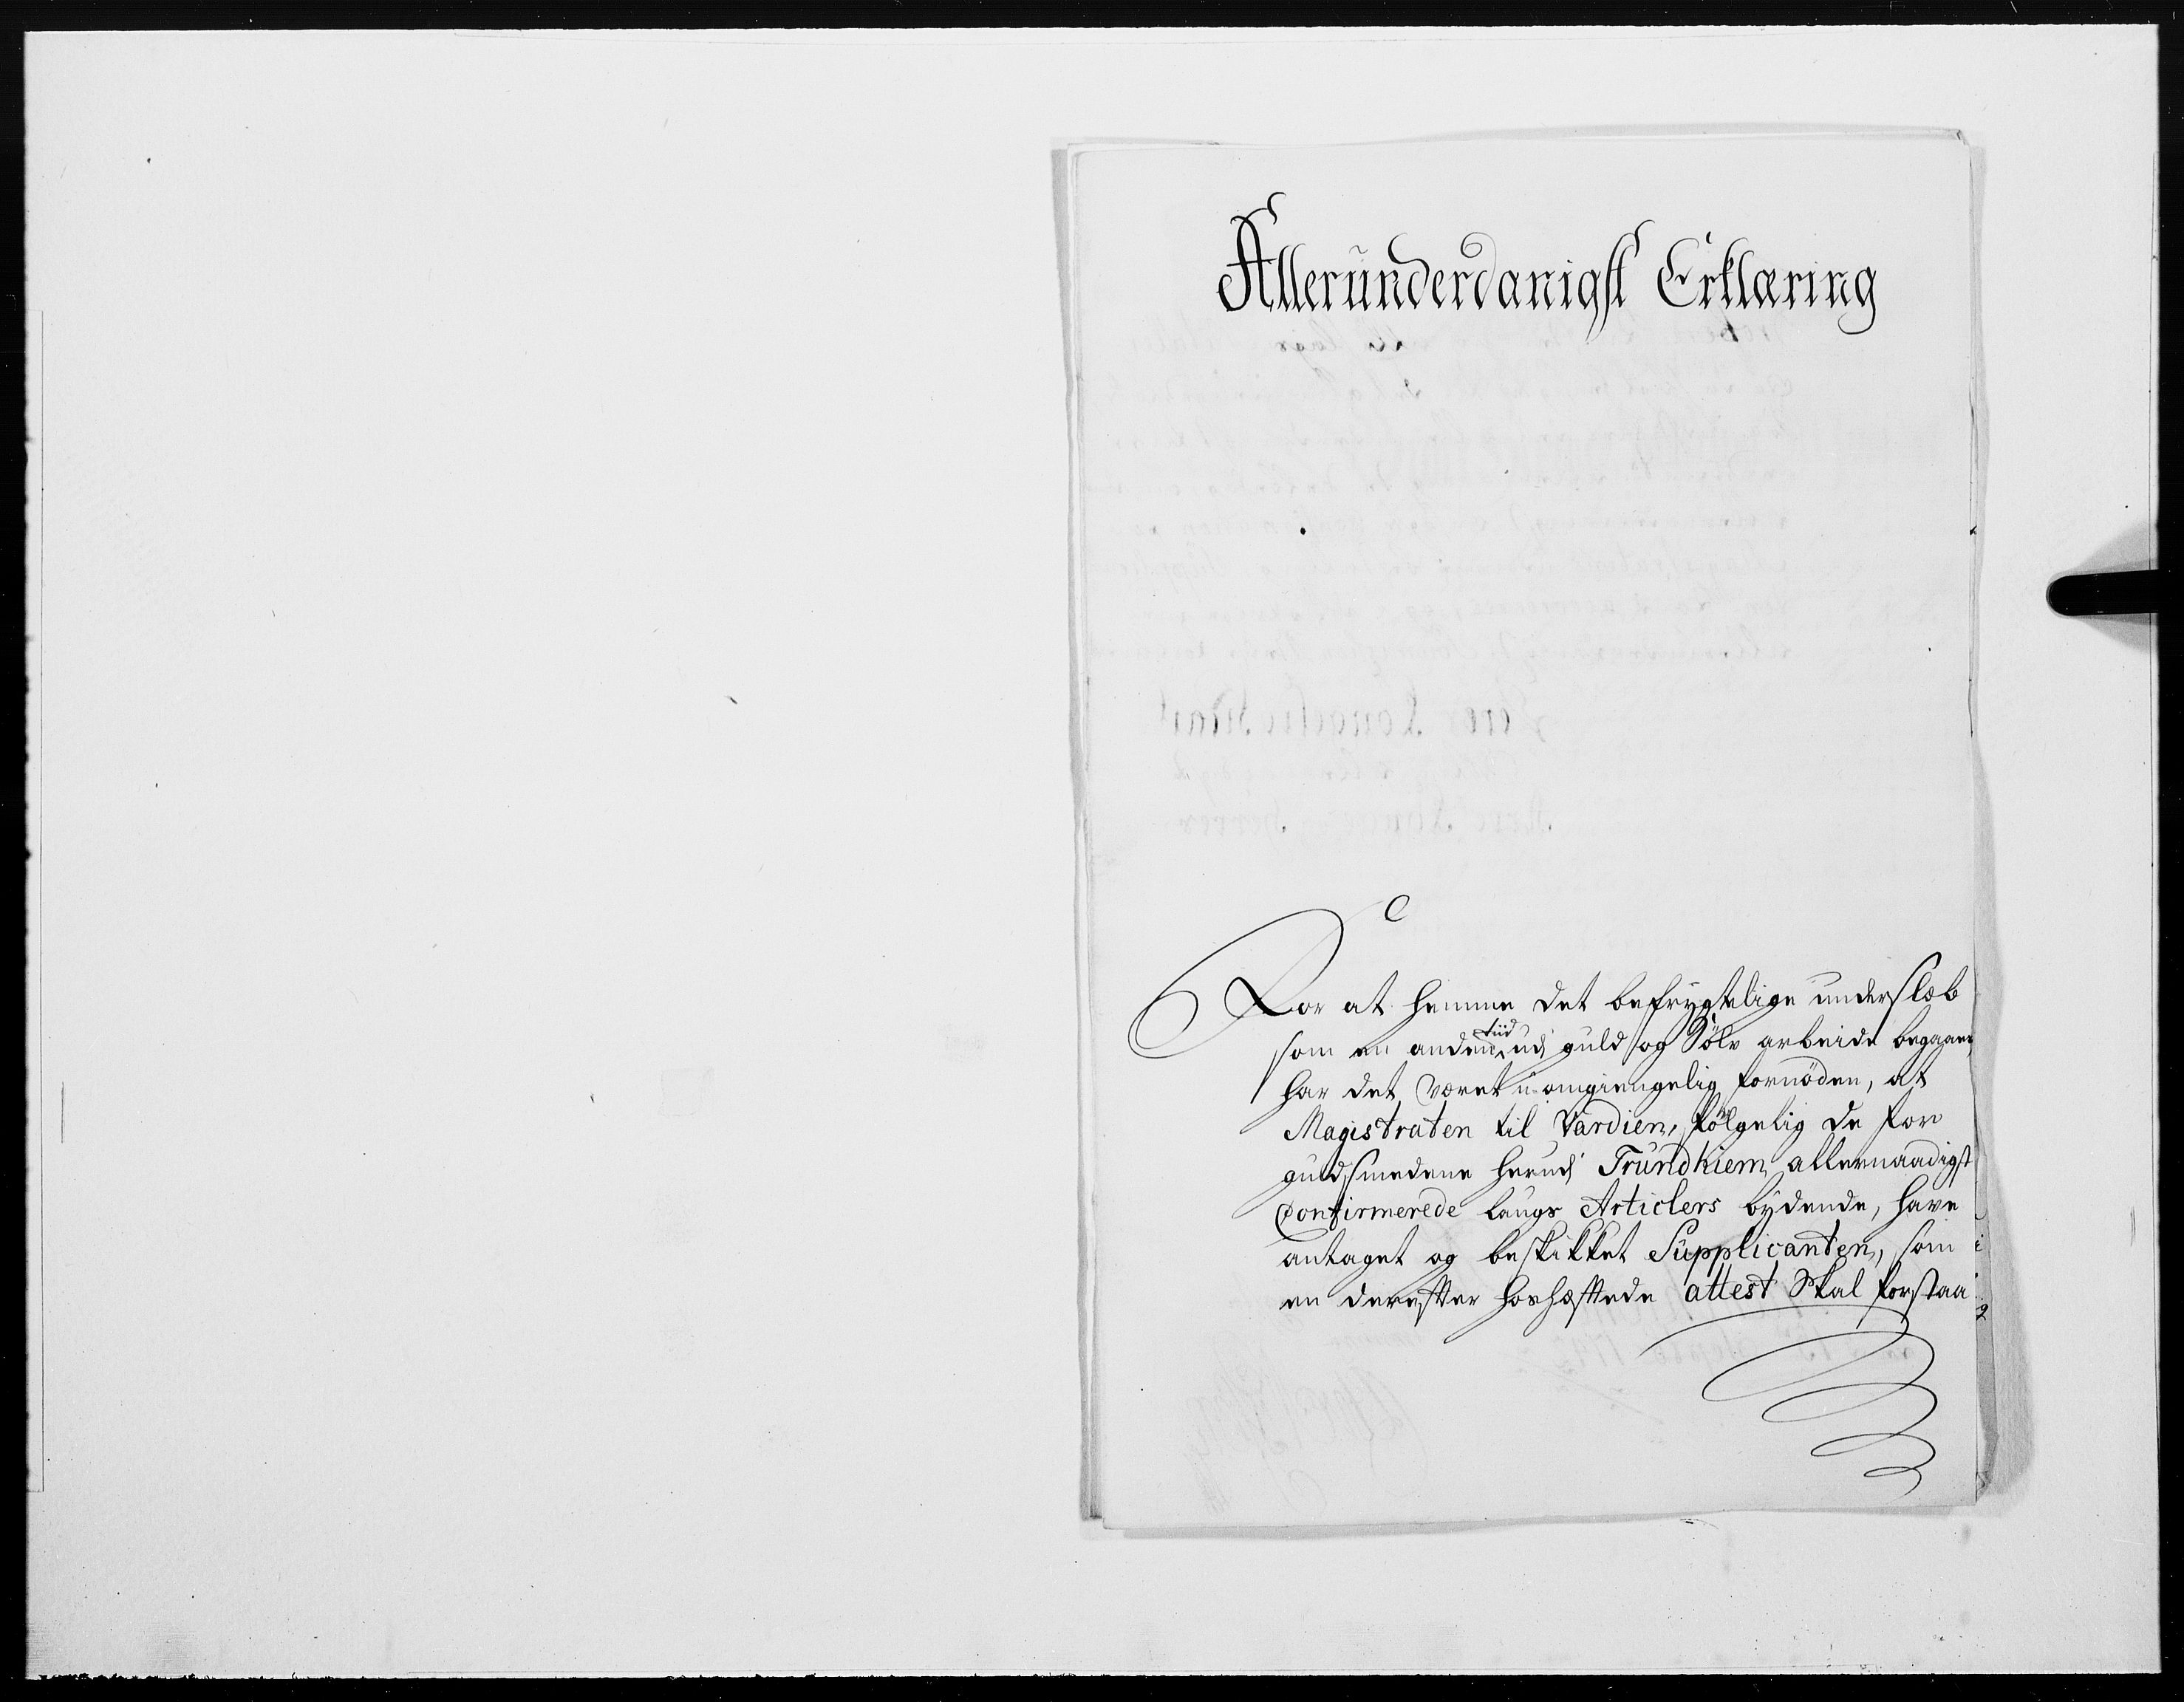 Alleründerdanigst Erklæring
For at hemme det befrygtelige underslæb
som en anden tiid udj guld og Sølv arbeide begaaes,
har det været u-omgiengelig fornøden, at
Magistraten til Vardien, følgelig de for
guldsmedene herudj Trundhiem allernaadigst
Confirmerede laugs Articlers bÿdende, have
antaget og beskikket Supplicanten, som
en derefter hoshæftede attest Skal forstaa